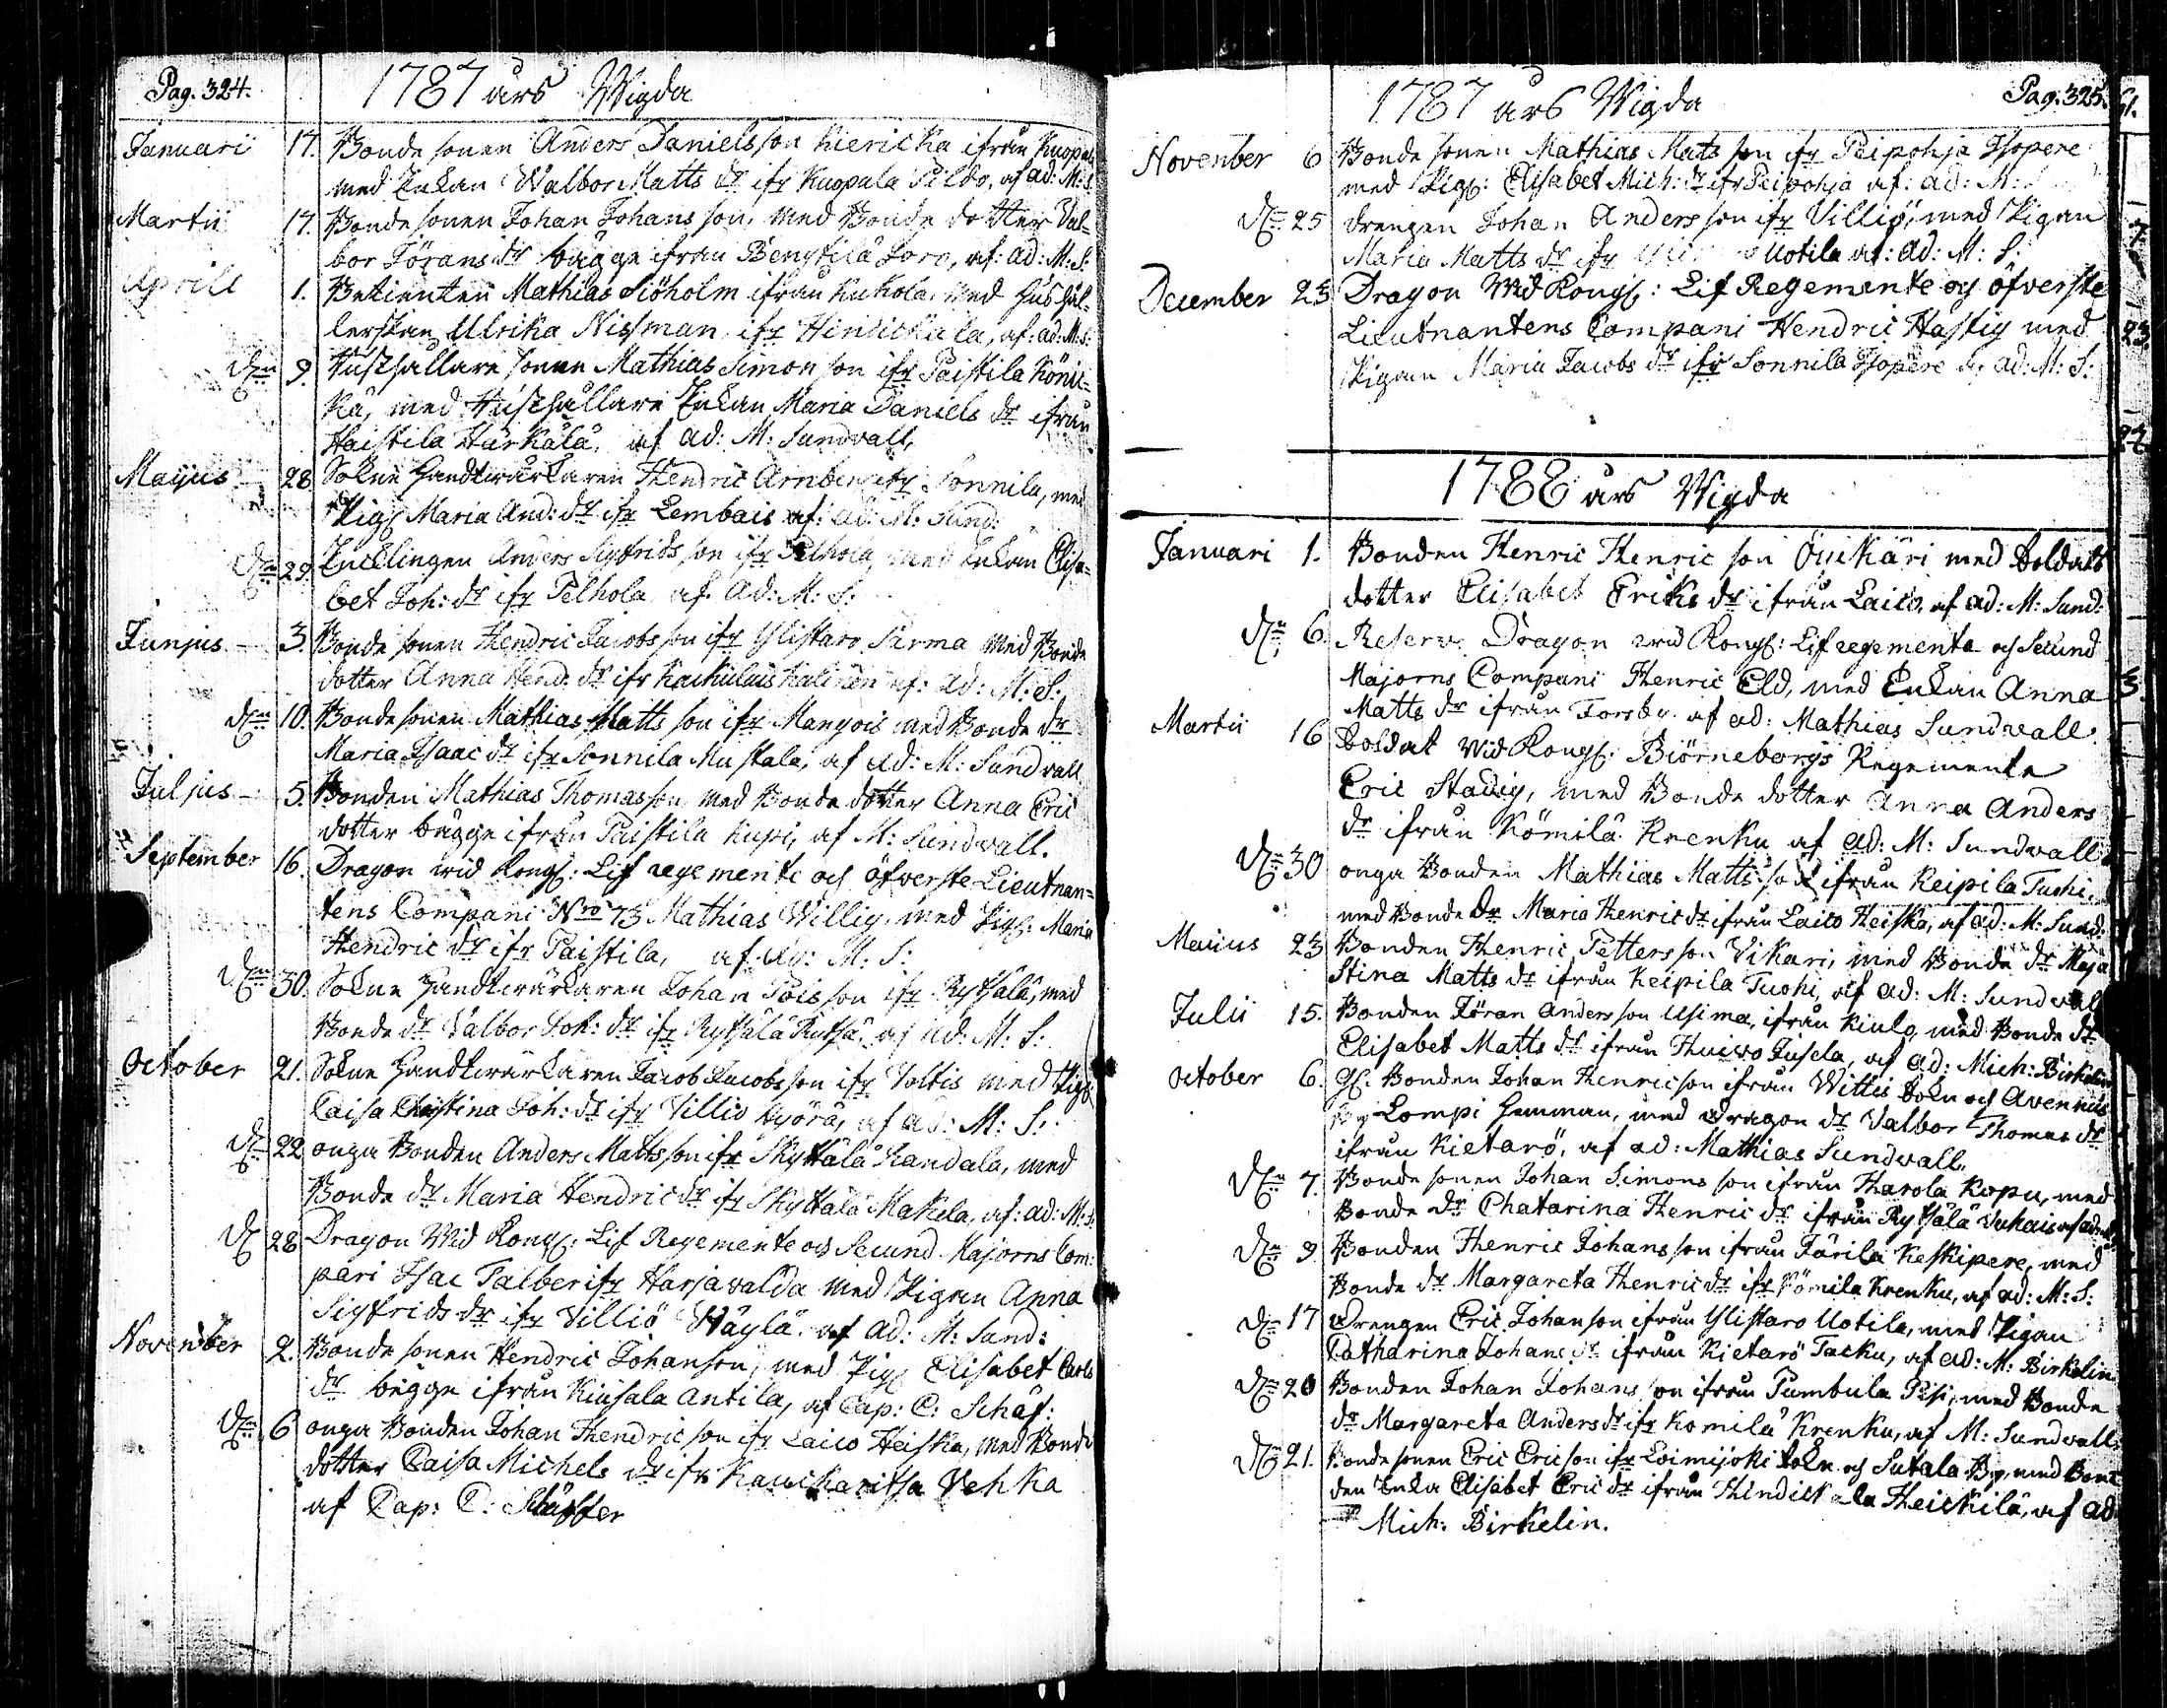 Pag. 324.
1787 års Wigda
Januarii 17. Bonde sonen Anders Danielsson Kiericka ifrån Kuopala
med Enkan Walbor Matts dr ifr Kuopala Pildo, af ad: M: S.
Martii 17. Bonde sonen Johan Johansson, med Bonde dotter Val-
bor Jörans dr bägge ifrån Bengtilä Loro, af: ad: M: S.
Aprill 1. Betienten Mathias Siöholm ifrån Kukola, med Hushål-
lerskan Ulrika Nissman ifr Hinrickala, af: ad: M: S:
Dn 9. Hushållare sonen Mathias Simonson ifr Paistila Köni-
kä, med Hushållare Enkan Maria Daniels dr ifrån
Haistila Härkälä, af ad: M: Sundvall,
Maijus 28. Sokne Handtwärkaren Hendric Arnberg ifr Sonnila, med
Pig: Maria And: dr ifr Lembais af: ad: M: Sund:
Dn 29. Encklingen Anders Sigfrids son ifr Pelhola, med Enkan Elisa-
bet Joh: dr ifr Pelhola af. Ad: M: S:
Junjus 3. Bonde sonen Hendric Jacobsson ifr Ylistaro Sirma med Bonde
dotter Anna Hend: dr ifr Kaukulais Kalinen af: ad: M: S.
dn 10. Bonde sonen Mathias Matts son ifr Mangois med Bonde dr
Maria Isaac dr ifr Sonnila Mustala, af ad: M: Sundvall
Juljus 5. Bonden Mathias Thomasson med Bonde dotter Anna Eric
dotter bägge ifrån Paistila Kupi, af M: Sundvall.
September 16. Dragon wid Kongl: Lif regemente och öfverste Lieutnan-
tens Compani Nro 73 Mathias Willig, med Pig: Maria
Hendric dr ifr Paistila, af: Ad: M: S:
Dn 30. Sokne Handtwärkaren Johan Påls son ifr Rytsälä, med
Bonde dr Valbor Joh: dr ifr Rytsälä Rytsä, af Ad: M: S:
October 21. Sokne Handtwärkaren Jacob Jacobsson ifr Voltis med Pig:
Caisa Christina Joh: dr ifr Villio Hyörä, af ad: M: S:
Dn 22 onga Bonden Anders Matts son ifr Skyttälä Randala, med
Bonde dr Maria Hendric dr ifr Skyttälä Makela, af: ad: M: S.
Dn 28 Dragon Wid Kongl: Lif Regemente och Secund Majorns Com-
pani Isac Talber ifr Harjavalda med Pigan Anna
Sigfrids dr ifr Villiö Wäylä, af Ad: M: Sund:
November 2. Bonde sonen Hendric Johanson, med Pig: Elisabet Carls
dr bägge ifrån Kiusala Antila, af Cap: C: Schäf:
Dn 6 onga Bonden Johan Hendric son ifr Laico Heiska, med Bonde
dotter Caisa Michels dr ifr Kauckaritsa Vehka
af Cap: C: Schäffer
Pag. 325.
1787 års Wigda
November 6 Bonde sonen Mathias Mats son ifr Peipohja Isopere
med Pig: Elisabet Mich: dr ifr Peipohja af: ad: M:
Dn 25 drengen Johan Anders son ifr Villiö, med Pigan
Maria Matts dr ifr Uotila af: Ad: M: S:
December 23 Dragon Wid Kongl: Lif Regemente och öfverste
Lieutnantens Compani Hendric Hastig med
Pigan Maria Jacobs dr ifr Sonnila Isopere af ad: M: S:
1788 års Wigda
Januari 1. Bonden Henric Henric son Ouikäri med Soldats
dotter Elisabet Eriks dr ifrån Laico, af ad: M: Sund:
Dn 6. Reserv Dragon wid Kongl: Lif regemente och Secund
Majorns Compani Henric Eld, med Enkan Anna
Matts dr ifrån Forsby. af ad: Mathias Sundwall
Martii 16 Soldat Wid Kongl: Biörneborgs Regemente
Eric Stadig, med Bonde dotter Anna Anders
dr ifrån Kömilä Krenku af ad: M: Sundwall
Dn 30 onga Bonden Mathias Matts son ifrån Keipila Tuohi,
med Bonde dr Maria Henric dr ifrån Laico Heiska, af ad: M: Sund:
Maiius 23 Bonden Henric Petters son Vikari, med Bonde dr Maja
Stina Matts dr ifrån Keipila Tuohi, af ad: M: Sundwall
Julii 15. Bonden Jöran Anders son Usima, ifrån Kiulo, med Bonde dr
Elisabet Matts dr ifrån Huiwo Jusela, af ad: Mich: Birkelin
October 6. Gl: Bonden Johan Henricson ifrån Wittis Sokn och Avennus
by Lompi Hemman, med Dragon dr Valbor Thomas dr
ifrån Kietarö, af ad: Mathias Sundwall.
Dn 7. Bonde sonen Johan Simons son ifrån Harola Kopu, med
Bonde dr Chatarina Henric dr ifrån Rytsälä Juhais af ad: M:
Dn 9. Bonden Henric Johans son ifrån Järilä Keskipere, med
Bonde dr Margareta Henric dr ifr Kömila Krenku, af ad: M: S:
Dn 17 Drengen Eric Johanson ifrån Ylistaro Uotila, med Pigan
Catharina Johans dr ifrån Kietarö Tacku, af ad: M: Birkelin.
Dn 20 Bonden Johan Johans son ifrån Tumbula Pisi, med Bonde
dr Margareta Anders dr ifr Komilä Krenku, af M: Sundvall
Dn 21. Bonde sonen Eric Ericson ifr Loimijoki Sokn och Sutala By, med Bon-
den Enka Elisabet Eric dr ifrån Hindickala Heickilä, af ad
Mich: Birkelin.